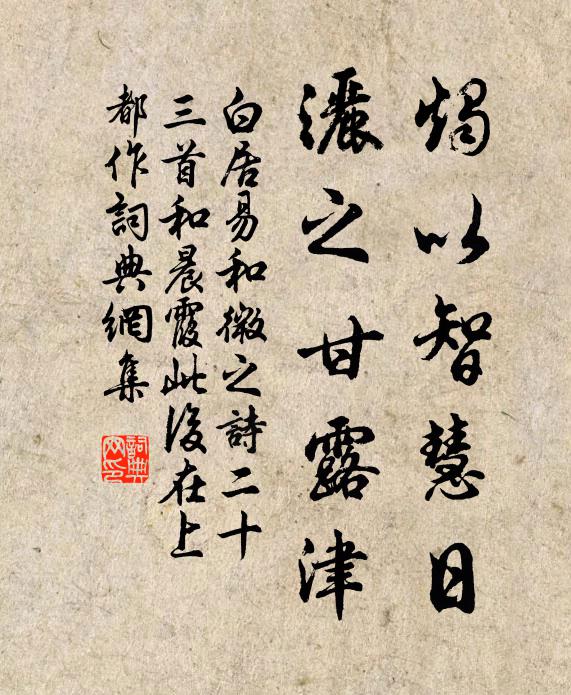 燭以智慧日
灑之甘露津
白居易和微之詩二十
三首和晨霞此後在上
都作詞典網集
詞典網印